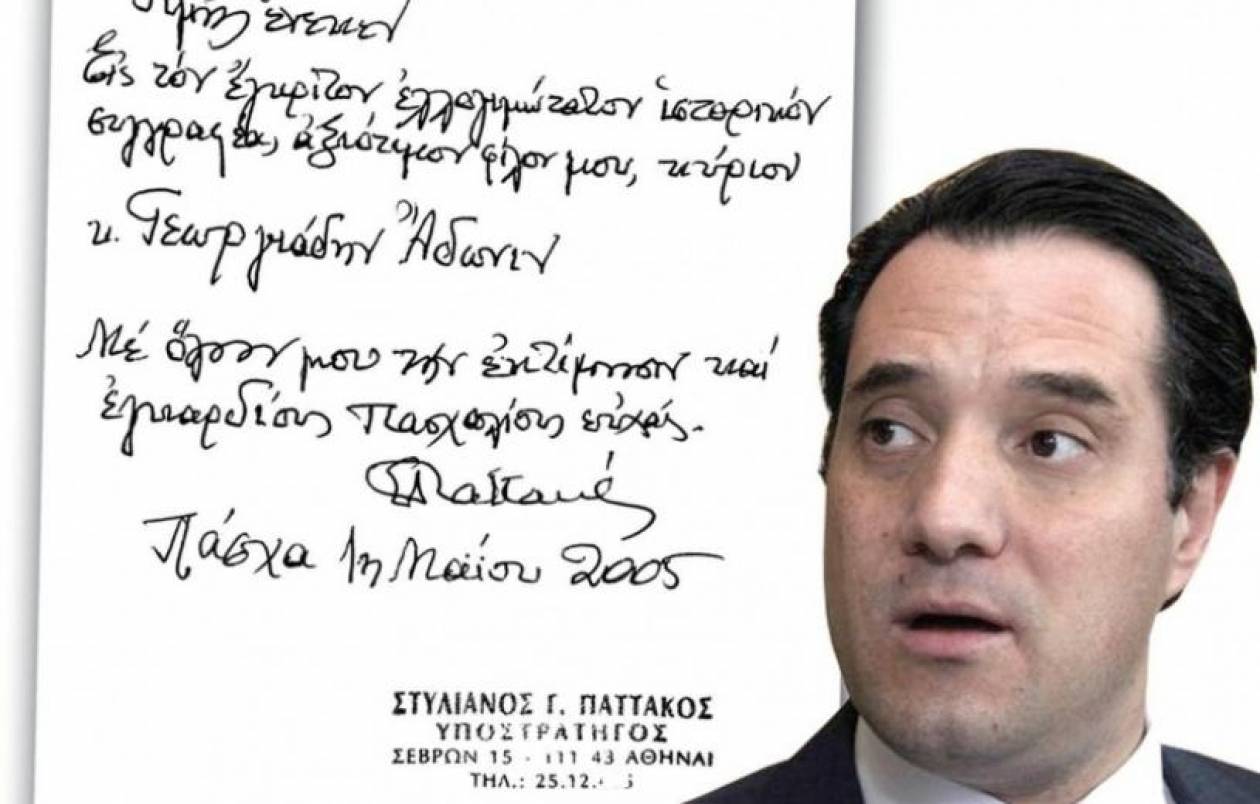 Τιμῆς ἕνεκεν
Εἰς τόν ἔγκριτον ἐλλογιμώτατον ἱστορικόν
συγγραφέα, ἀξιότιμον φίλον μου, κύριον
κ. Γεωργιάδην Ἄδωνιν
Μέ ὅλην μου τήν ἐκτίμησιν καί
ἐγκαρδίους πασχαλίους εὐχάς.
ΣΠαττακός
Πάσχα 1η Μαΐου 2005
ΣΤΥΛΙΑΝΟΣ Γ. ΠΑΤΤΑΚΟΣ
ΥΠΟΣΤΡΑΤΗΓΟΣ
ΣΕΒΡΩΝ 15 - 111 43 ΑΘΗΝΑΙ
ΤΗΛ.: 25.12.